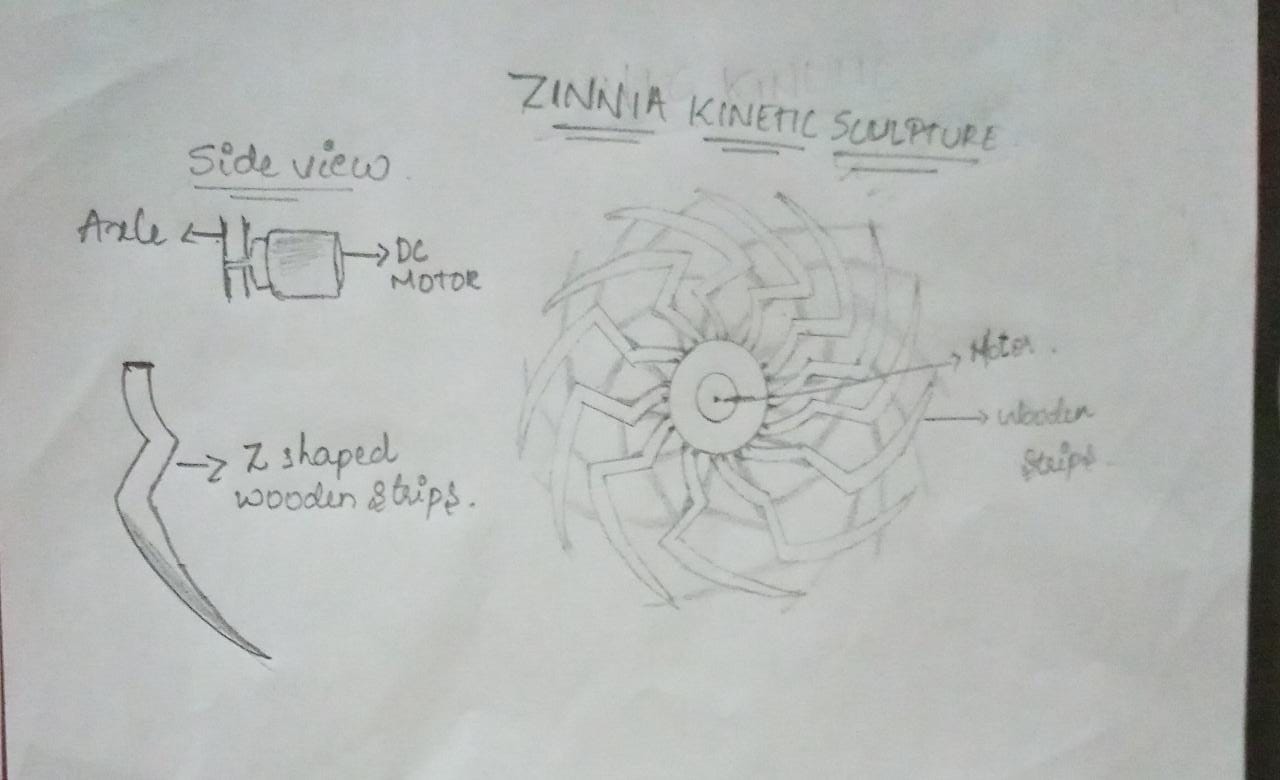 ZINNIA KINETIC SCULPTURE
Side view
Axle
DC
MOTOR
Z shaped
wooden strips.
Motor.
Wooden
Strips